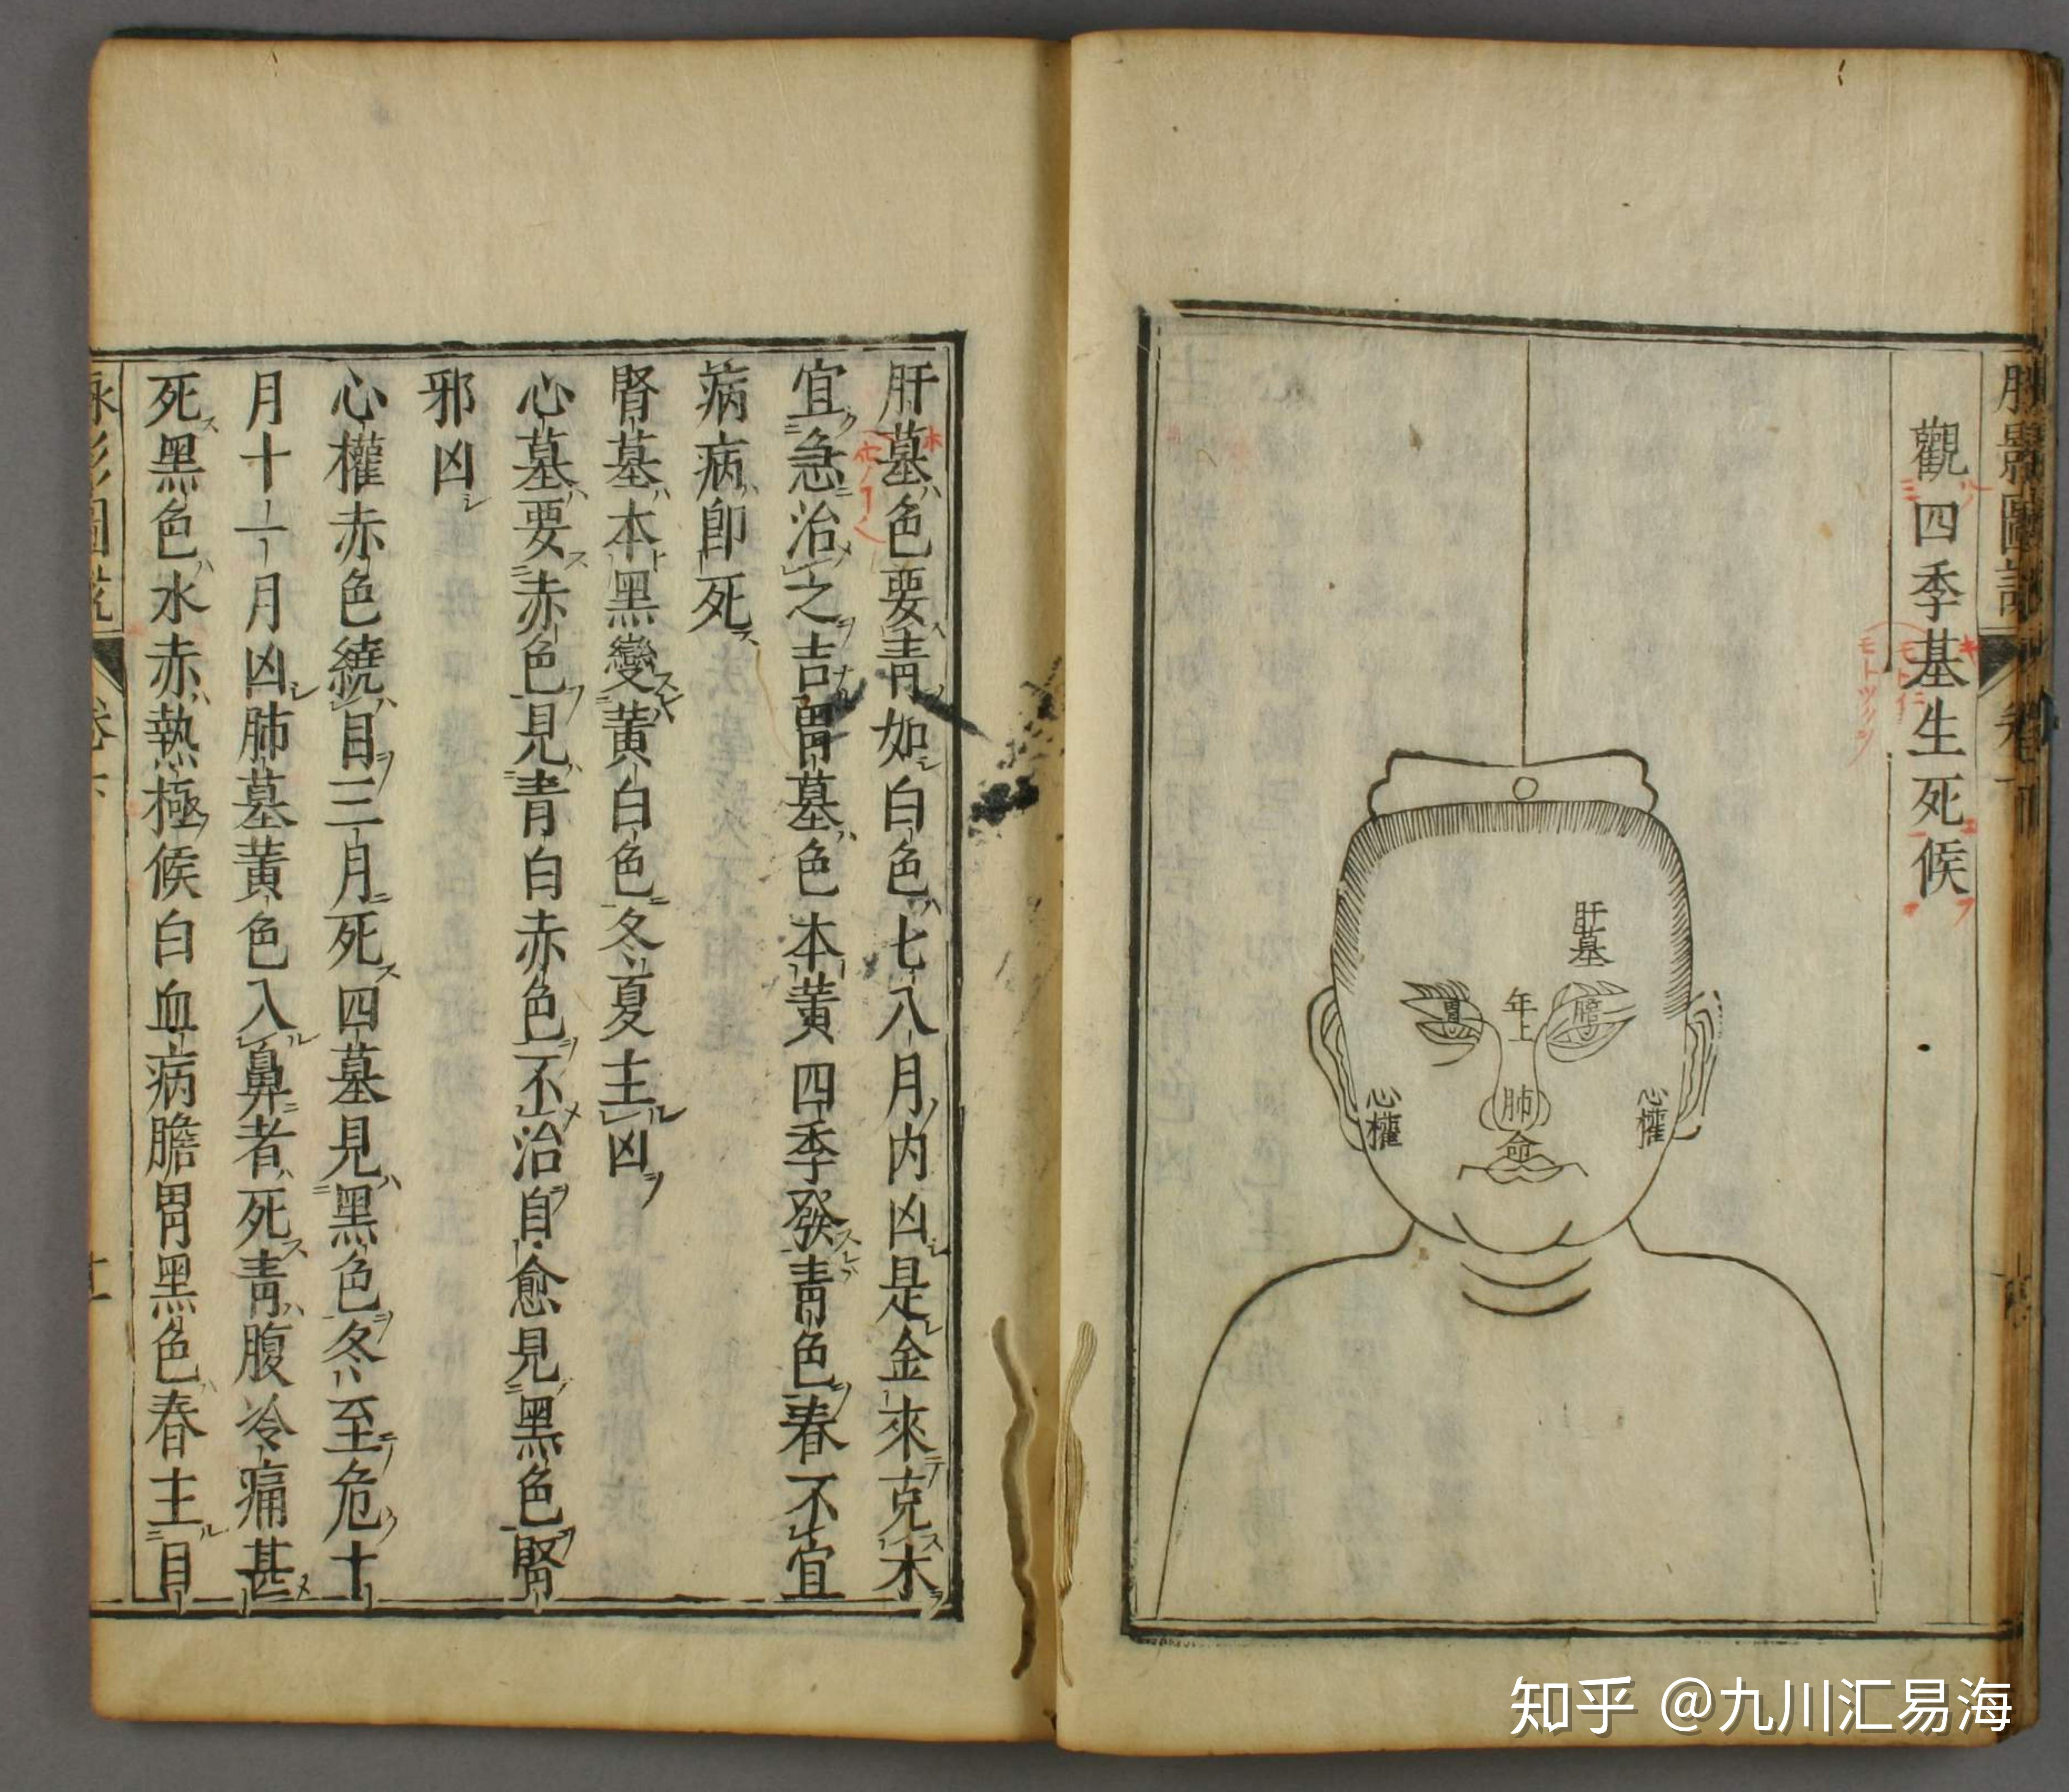 觀四季基生死候
肝墓
年上
胃
膽
肺
命
心權
心權
卷下
肝墓色要青如白色七八月内凶是金來克木
宜急治之吉胃墓色本黃四季發青色春不宜
病病即死
腎墓本黑變黃白色冬夏主凶
心墓要赤色見青白赤色不治自愈見黑色腎
邪凶
心權赤色繞目三月死四墓見黑色冬至危十
月十一月凶肺墓黃色入鼻者死青腹冷痛甚
死黑色水赤熱極候白血病膽胃黑色春主目
知乎 @九川汇易海